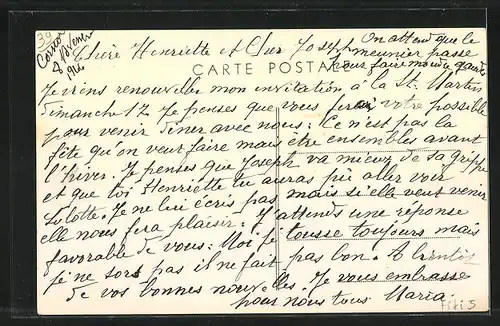 39
Cornod
8 Novembre
On attend que le
Chère Henriette et Cher Joseph meunier passe
pour faire moudre
CARTE POSTALE
Je viens renouveller mon invitation à la St. Martin
dimanche 12 Je penses que vous ferai votre possible
pour venir diner avec nous: Ce n'est pas la
fête qu'on veut faire mais être ensembles avant
l'hiver. Je penses que Joseph va mieux de sa grippe
et que toi Henriette tu auras pu aller voir
Lolotte. Je ne lui écris pas mais si elle veut venir
elle nous fera plaisir. J'attends une réponse
favorable de vous: Moi je tousse toujours mais
je ne sors pas il ne fait pas bon. A bientôt
de vos bonnes nouvelles. Je vous embrasse
pour nous tous Maria.